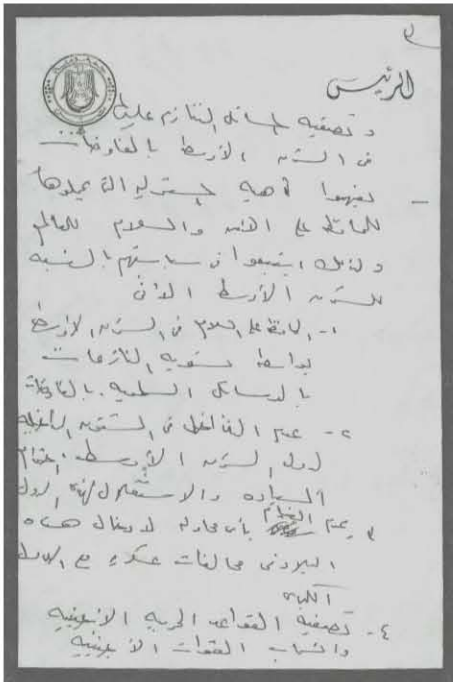 ٣
الرئيس
وتصفية المسائل المتنازع عليها
فى الشرق الأوسط بالمفاوضات
– تفهموا أهمية المسئولية التى يحملوها
للمحافظة على الأمن والسلام للعالم
ولذلك اتبعوا فى سياستهم بالنسبة
للشرق الأوسط الآتى
١- المحافظة على السلام فى الشرق الأوسط
بواسطة تسوية المنازعات
بالوسائل السلمية بالمفاوضات
٢- عدم التدخل فى الشئون الداخلية
لدول الشرق الأوسط واحترام
السيادة والاستقلال لهذه الدول
٣ عدم القيام بأى محاولة لادخال هذه
البلاد فى محالفات عسكرية مع الدول
الكبرى
٤- تصفية القواعد الحربية الأجنبية
وانسحاب القوات الأجنبية